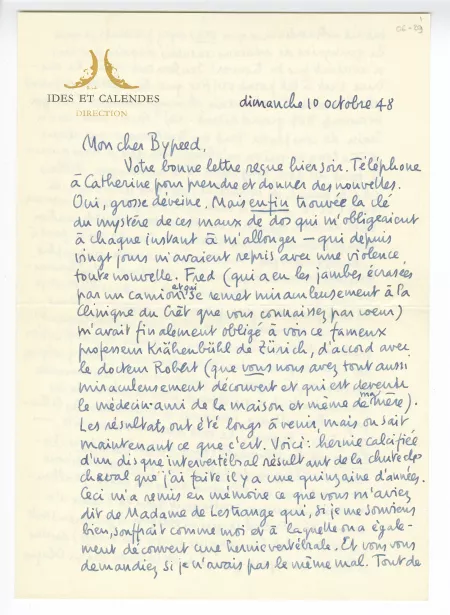 06-03
IDES ET CALENDES
DIRECTION
dimanche 10 octobre 48
Mon cher Bypeed,
Votre bonne lettre reçue hier soir. Téléphone
à Catherine pour prendre et donner des nouvelles.
Oui, grosse déveine. Mais enfin trouvée la clé
du mystère de ces maux de dos qui m'obligeaient
à chaque instant à m'allonger — qui depuis
vingt jours m'avaient repris avec une violence
toute nouvelle. Fred (qui a eu les jambes écrasées
par un camion et qui se remet miraculeusement à la
Clinique du Crêt que vous connaissez par coeur)
m'avait finalement obligé à voir ce fameux
professeur Krähenbühl de Zürich, d'accord avec
le docteur Robert (que vous nous avez tout aussi
miraculeusement découvert et qui est devenu
le médecin-ami de la maison et même de ma mère).
Les résultats ont été longs à venir, mais on sait
maintenant ce que c'est. Voici: hernie calcifiée
d'un disque intervertébral résultant de la chute de
cheval que j'ai faite il y a une quinzaine d'années.
Ceci m'a remis en mémoire ce que vous m'aviez
dit de Madame de Lestrange qui, si je me souviens
bien, souffrait comme moi et à laquelle on a égale-
ment découvert une hernie vertébrale. Et vous vous
demandiez si je n'avais pas le même mal. Tout de